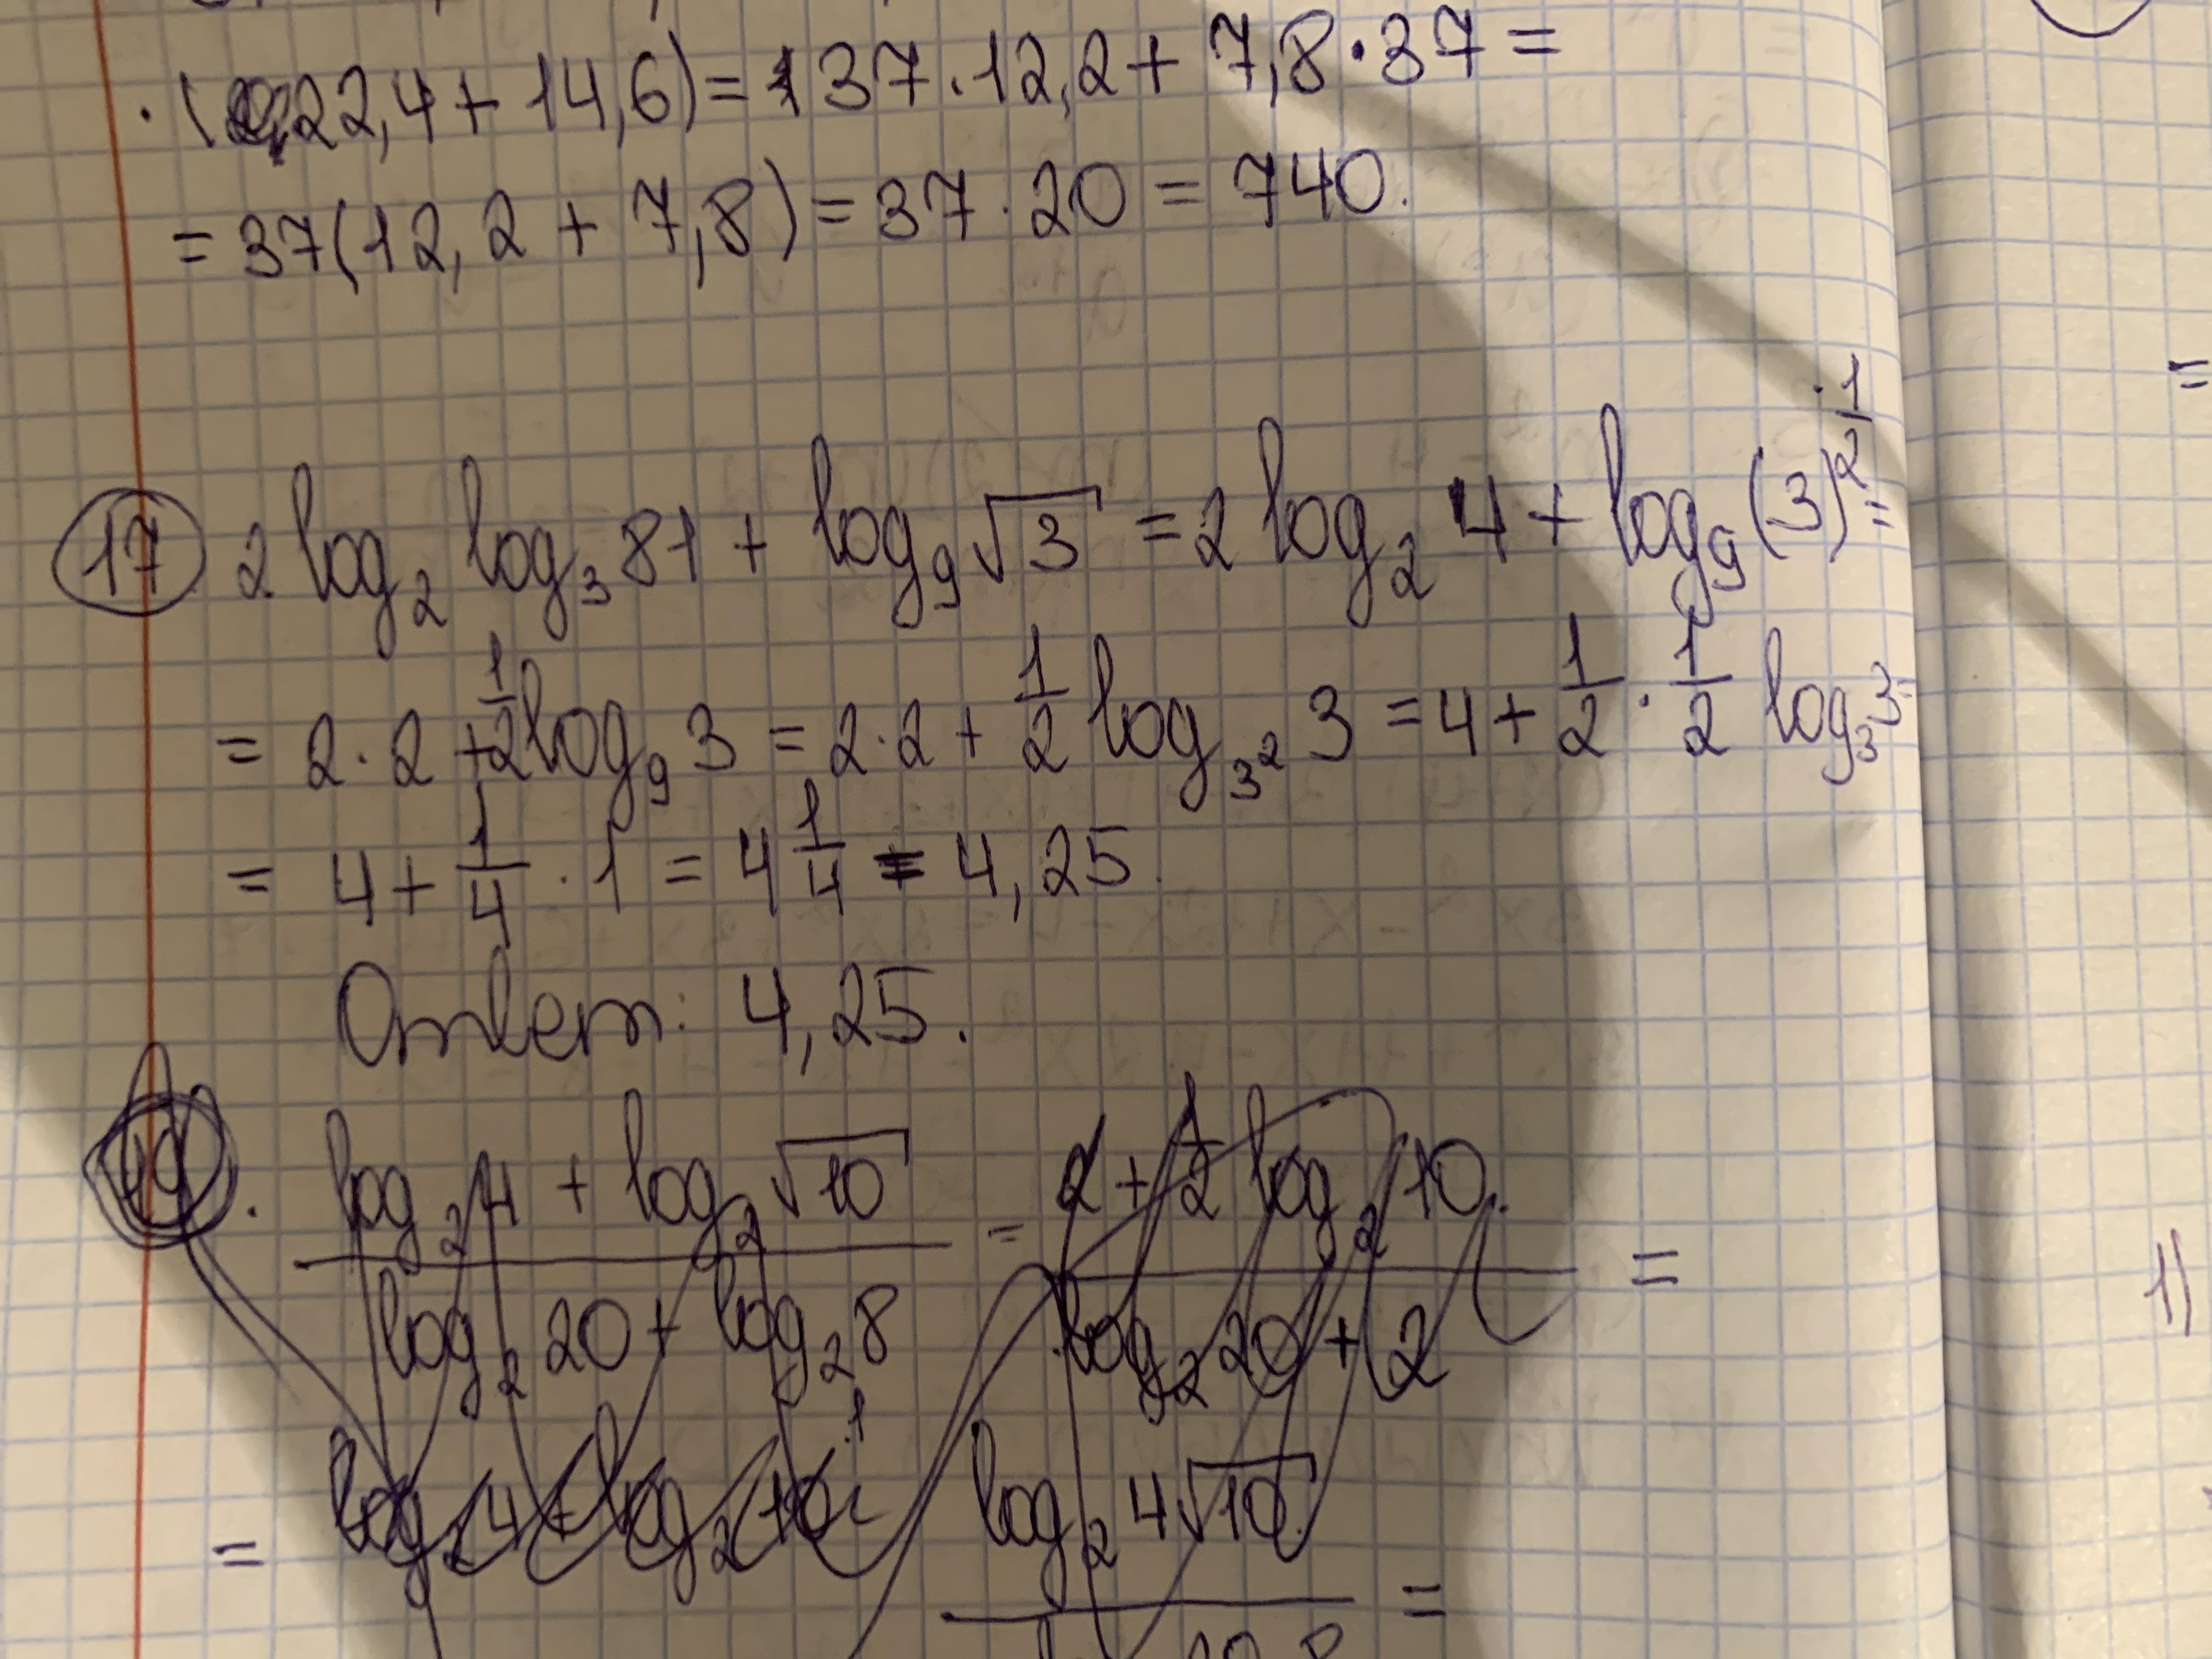 · (22,4 + 14,6) = 37 · 12,2 + 7,8 · 37 =
= 37(12,2 + 7,8) = 37 · 20 = 740.
17 2 log₂ log₃ 81 + log₉ √3 = 2 log₂ 4 + log₉ (3)^½ =
= 2 · 2 + ½ log₉ 3 = 2 · 2 + ½ log₃² 3 = 4 + ½ · ½ log₃ 3 =
= 4 + ¼ · 1 = 4 ¼ = 4,25.
Ответ: 4,25.
(log₂ 4 + log₂ √10) / (log₂ 20 + log₂ 8) = (2 + ½ log₂ 10) / (log₂ 20 + 2) =
= log₂ 4 + log₂ 10 log₂ 4√10 =
=
1)